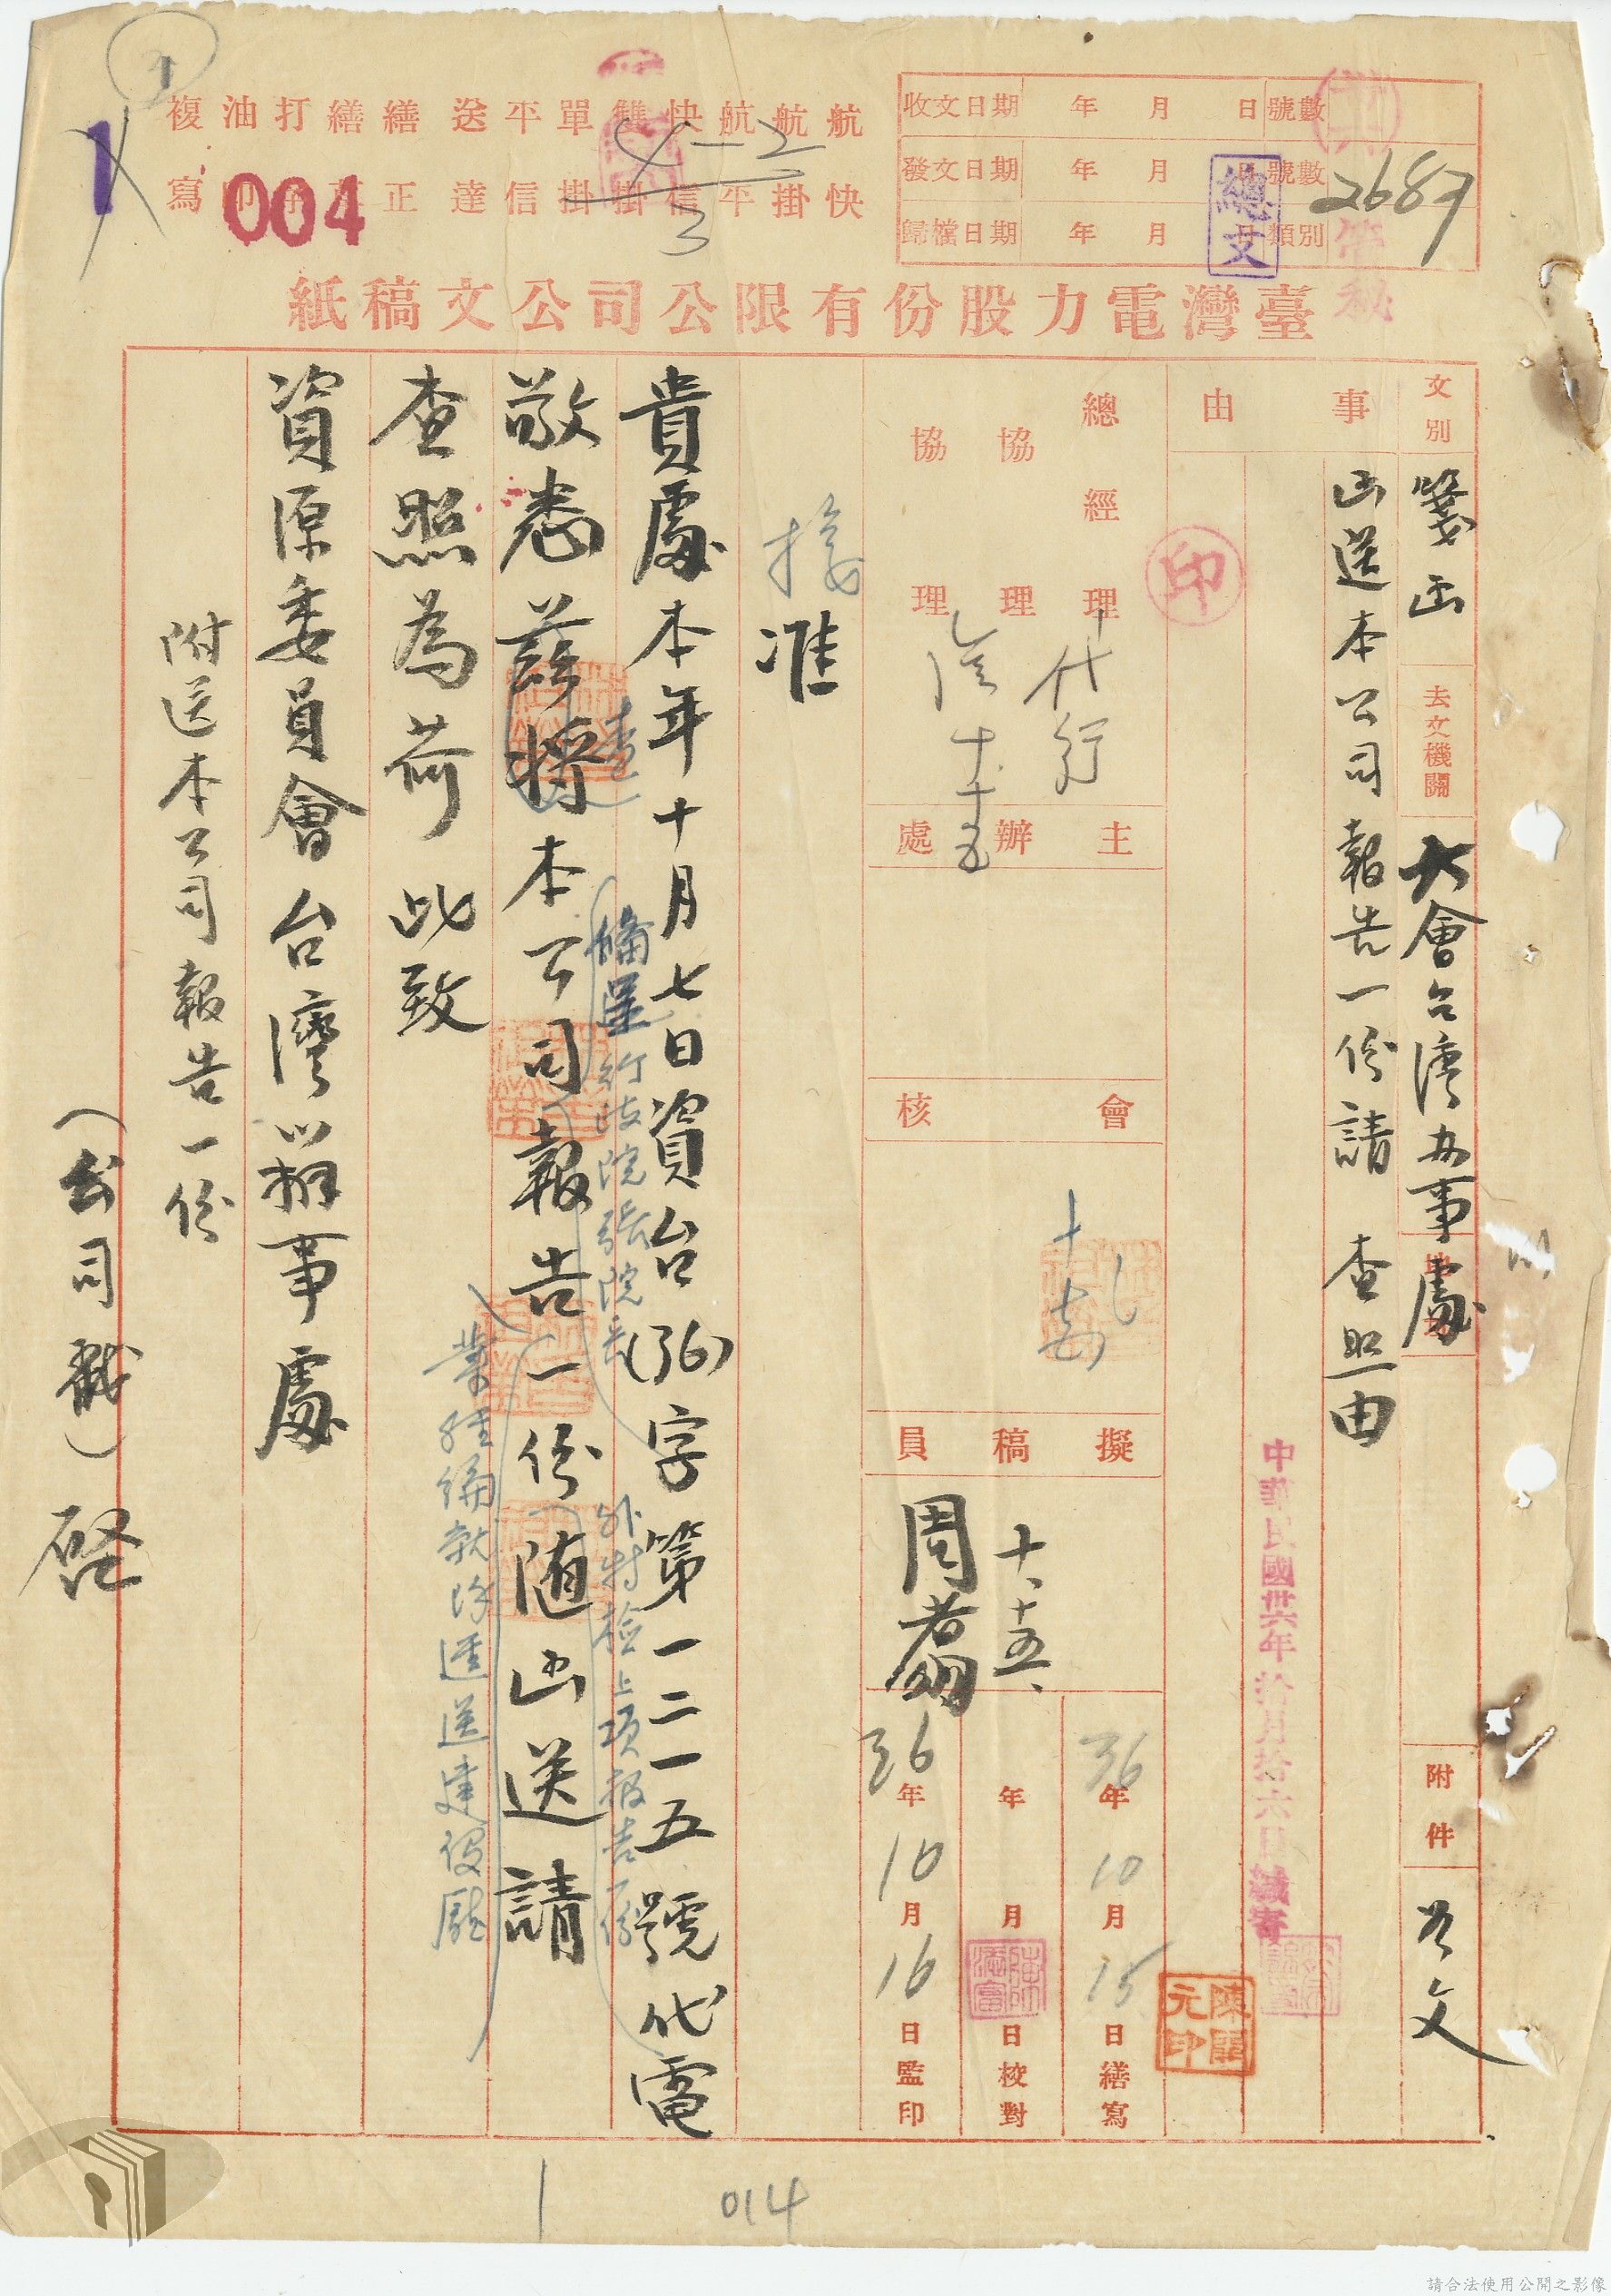 收文日期 年 月 日 號數
發文日期 年 月 日 號數 2687
歸檔日期 年 月 日 類別
總文
航快
航掛
航平
快信
雙掛
單掛
平信
送達
繕正
繕
打
油印
複寫
4-2
3
004
臺灣電力股份有限公司公文稿紙
文別 箋函 去文機關 大會台灣办事處 附件 如文
事由 函送本公司報告一份請 查照由
中華民國卅六年拾月拾六日繕寄
印
總經理 代行
協理
協理 十、十五
主辦處
會核
擬稿員 周 十、十五、
36年10月15日繕寫
年 月 日校對
36年10月16日監印
陳開元印
接准
貴處本年十月七日資台(36)字第一二一五號代電
敬悉茲將本公司報告一份隨函送請
查
備呈行政院張院長
外特檢上項報告一份
業經編就除逕送建設廳
查照為荷 此致
資源委員會台灣辦事處
附送本公司報告一份
(公司戳) 啓
014
請合法使用公開之影像